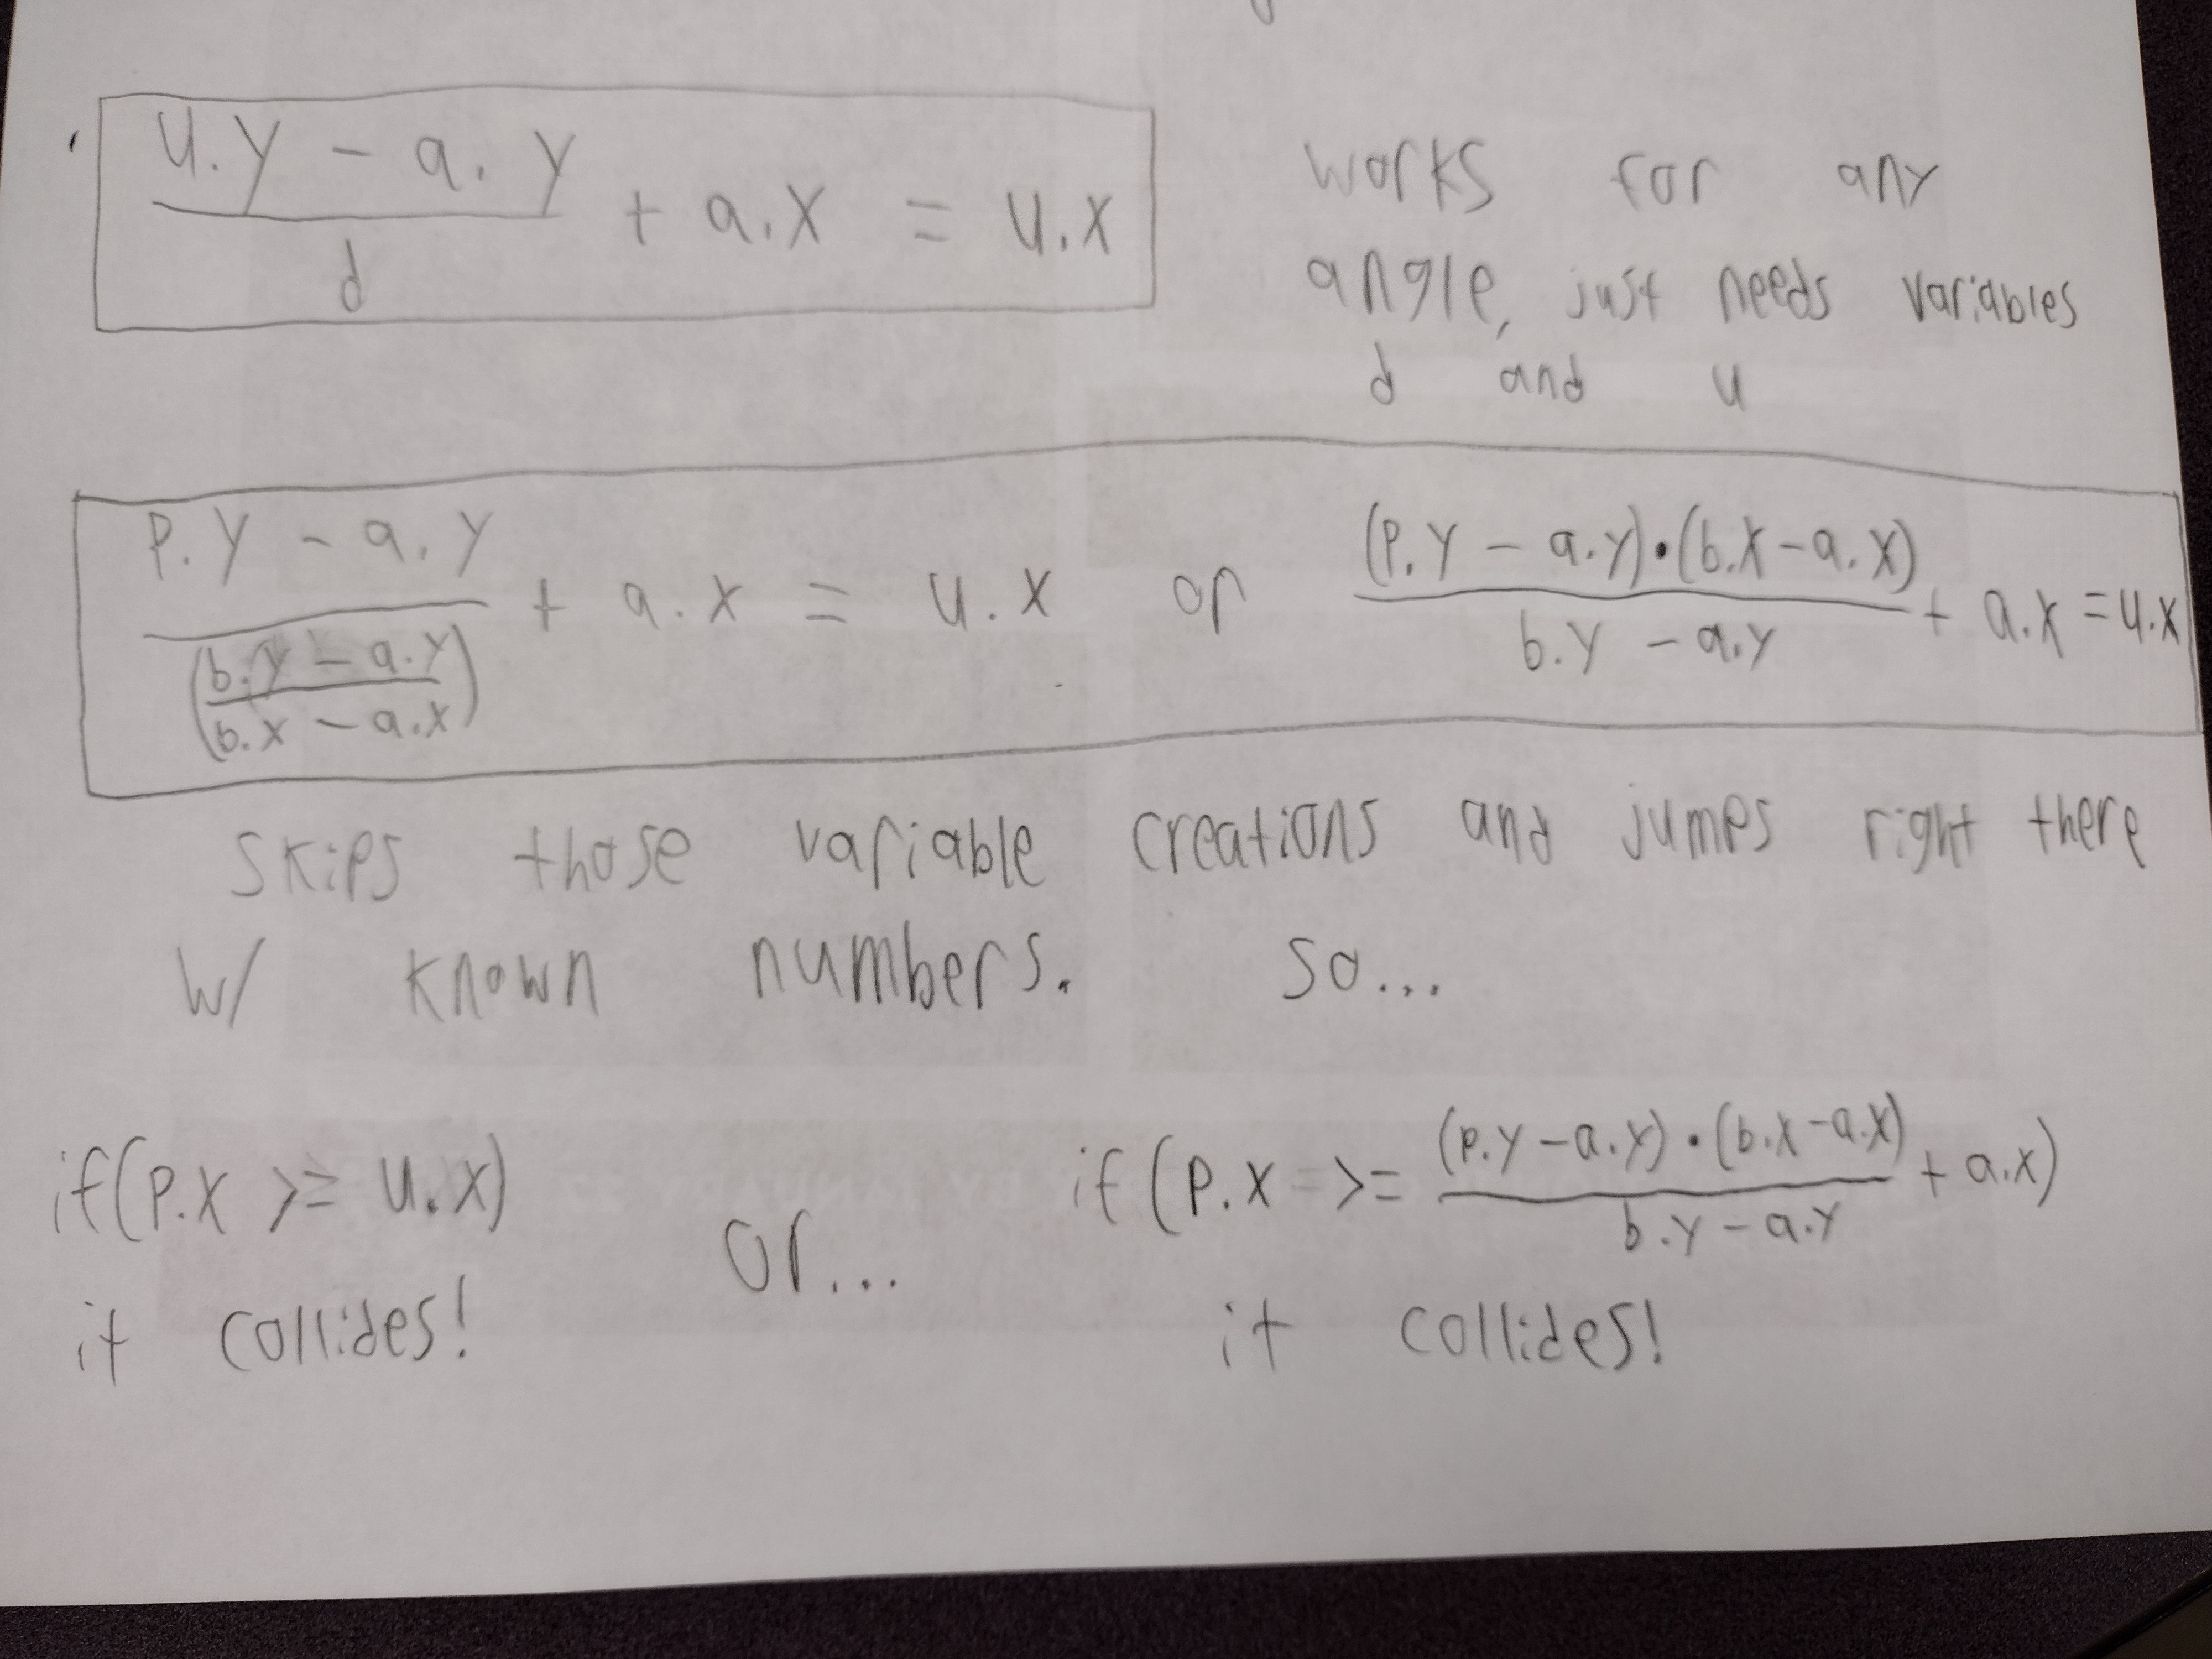 u.y - a.y
d
+ a.x = u.x
works for any
angle, just needs variables
d and u
p.y - a.y
(b.y - a.y
b.x - a.x)
+ a.x = u.x or
(p.y - a.y)•(b.x - a.x)
b.y - a.y
+ a.x = u.x
skips those variable creations and jumps right there
w/ known numbers. so...
if(p.x >= u.x)
it collides!
or...
if(p.x >= (p.y - a.y)•(b.x - a.x)
b.y - a.y
+ a.x)
it collides!